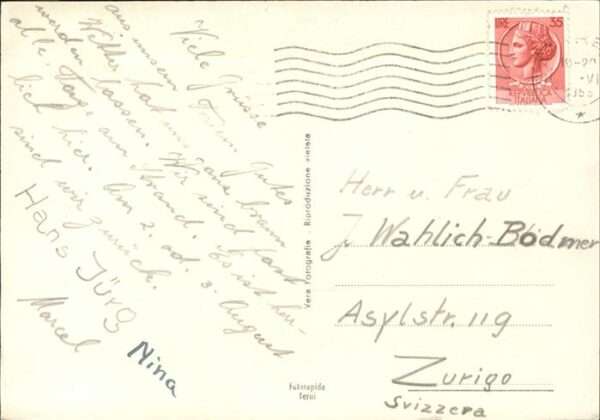 Viele Grüsse
aus unsern Ferien. Gutes
Wetter hat uns ganz braun
werden lassen. Wir sind fast
alle Tage am Strand. Es ist herr-
lich hier. Am 2. od. 3. August
sind wir zurück.
Hans Jürg
Marcel
Nina
Vera Fotografia - Riproduzione vietata
Fotorapida
Terni
35
ITALIANA
Herr u. Frau
J. Wahlich-Bodmer
Asylstr. 119
Zurigo
Svizzera